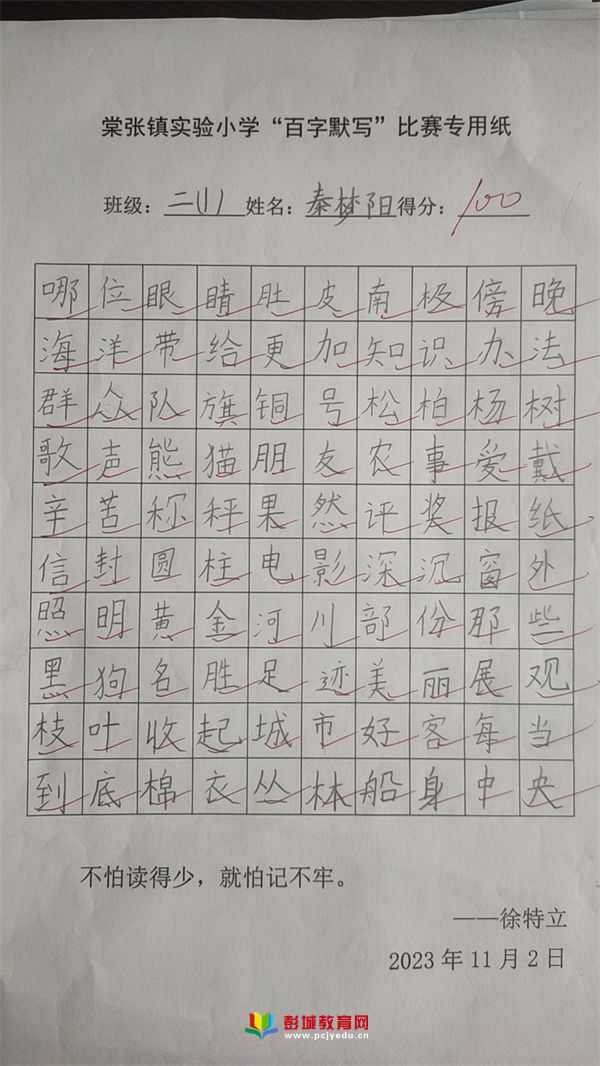 棠张镇实验小学“百字默写”比赛专用纸
班级：二(1) 姓名：秦梦阳 得分：100
哪位眼睛肚皮南极傍晚
海洋带给更加知识办法
群众队旗铜号松柏杨树
歌声熊猫朋友农事爱戴
辛苦称秤果然评奖报纸
信封圆柱电影深沉窗外
照明黄金河川部份那些
黑狗名胜足迹美丽展观
枝叶收起城市好客每当
到底棉衣丛林船身中央
不怕读得少，就怕记不牢。
——徐特立
2023年11月2日
彭城教育网
www.pcjyedu.cn